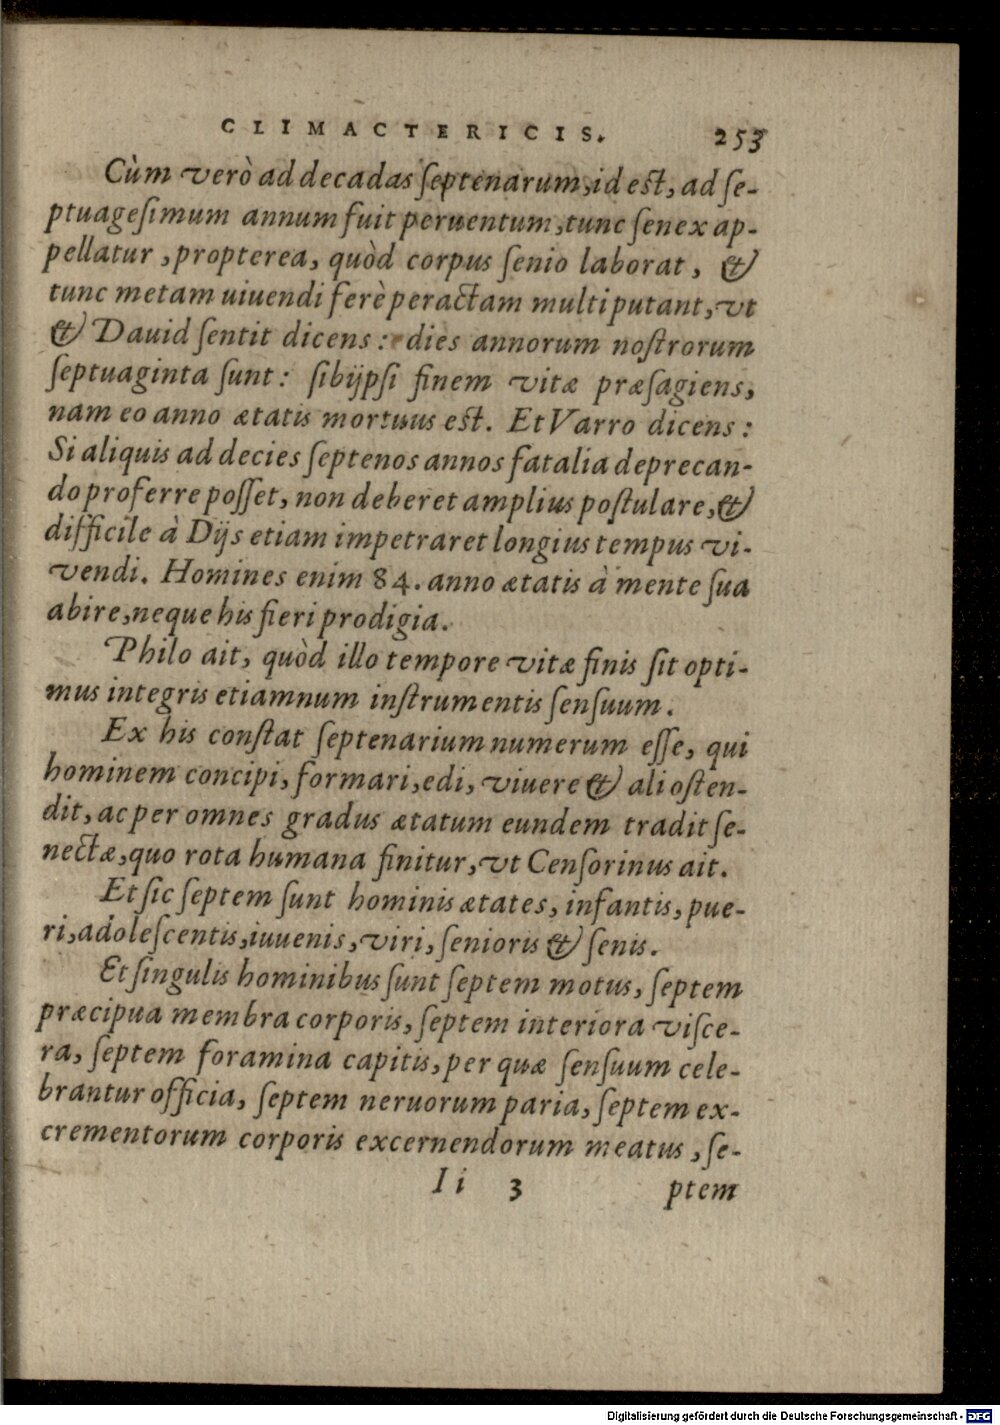 CLIMACTERICIS. 253
Cùm verò ad decadas ſeptenarum, id eſt, ad ſe-
ptuageſimum annum fuit peruentum, tunc ſenex ap-
pellatur, propterea, quòd corpus ſenio laborat, &
tunc metam uiuendi ferè peractam multi putant, vt
& Dauid ſentit dicens: dies annorum noſtrorum
ſeptuaginta ſunt: ſibijpſi finem vitæ præſagiens,
nam eo anno ætatis mortuus eſt. Et Varro dicens:
Si aliquis ad decies ſeptenos annos fatalia deprecan-
do proferre poſſet, non deberet amplius poſtulare, &
difficile à Dijs etiam impetraret longius tempus vi-
vendi. Homines enim 84. anno ætatis à mente ſua
abire, neque his fieri prodigia.
Philo ait, quòd illo tempore vitæ finis ſit opti-
mus integris etiamnum inſtrumentis ſenſuum.
Ex his conſtat ſeptenarium numerum eſſe, qui
hominem concipi, formari, edi, viuere & ali oſten-
dit, ac per omnes gradus ætatum eundem tradit ſe-
nectæ, quo rota humana finitur, vt Cenſorinus ait.
Et ſic ſeptem ſunt hominis ætates, infantis, pue-
ri, adoleſcentis, iuuenis, viri, ſenioris & ſenis.
Et ſingulis hominibus ſunt ſeptem motus, ſeptem
præcipua membra corporis, ſeptem interiora viſce-
ra, ſeptem foramina capitis, per quæ ſenſuum cele-
brantur officia, ſeptem neruorum paria, ſeptem ex-
crementorum corporis excernendorum meatus, ſe-
Ii 3 ptem
Digitalisierung gefördert durch die Deutsche Forschungsgemeinschaft - DFG